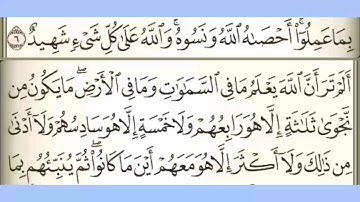 بِمَا عَمِلُوٓا۟ ۚ أَحْصَىٰهُ ٱللَّهُ وَنَسُوهُ ۚ وَٱللَّهُ عَلَىٰ كُلِّ شَىْءٍ شَهِيدٌ ٦
أَلَمْ تَرَ أَنَّ ٱللَّهَ يَعْلَمُ مَا فِى ٱلسَّمَٰوَٰتِ وَمَا فِى ٱلْأَرْضِ ۖ مَا يَكُونُ مِن
نَّجْوَىٰ ثَلَٰثَةٍ إِلَّا هُوَ رَابِعُهُمْ وَلَا خَمْسَةٍ إِلَّا هُوَ سَادِسُهُمْ وَلَآ أَدْنَىٰ
مِن ذَٰلِكَ وَلَآ أَكْثَرَ إِلَّا هُوَ مَعَهُمْ أَيْنَ مَا كَانُوا۟ ۖ ثُمَّ يُنَبِّئُهُم بِمَا